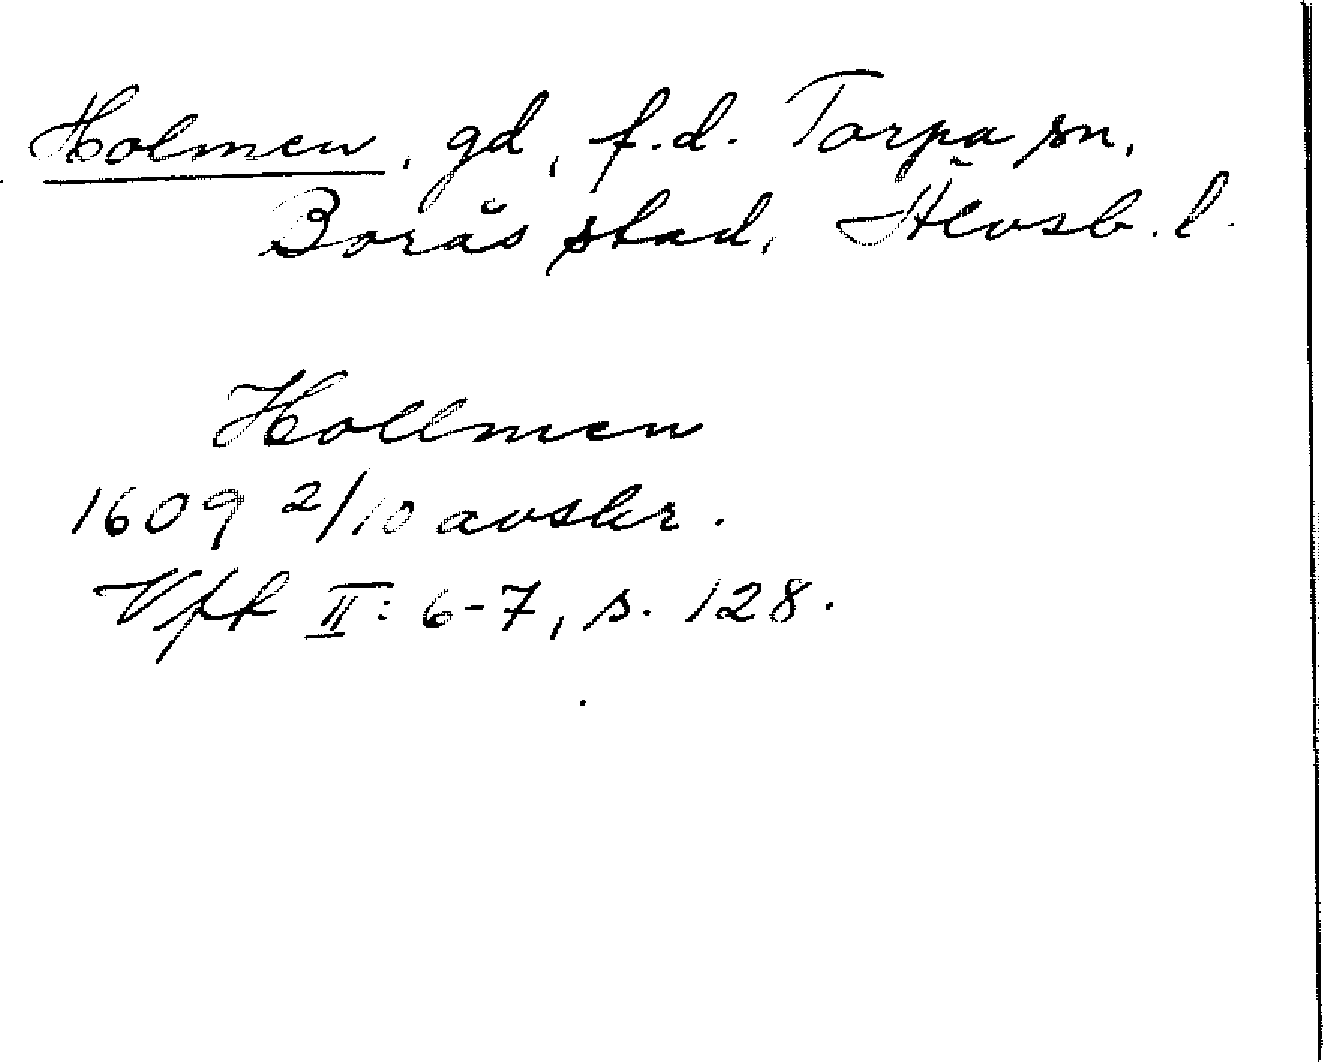 Holmen, gd, f.d. Torpa sn,
Borås stad, Älvsb. l.
Hollmen
1609 2/10 avskr.
Vfk II: 6-7, s. 128.